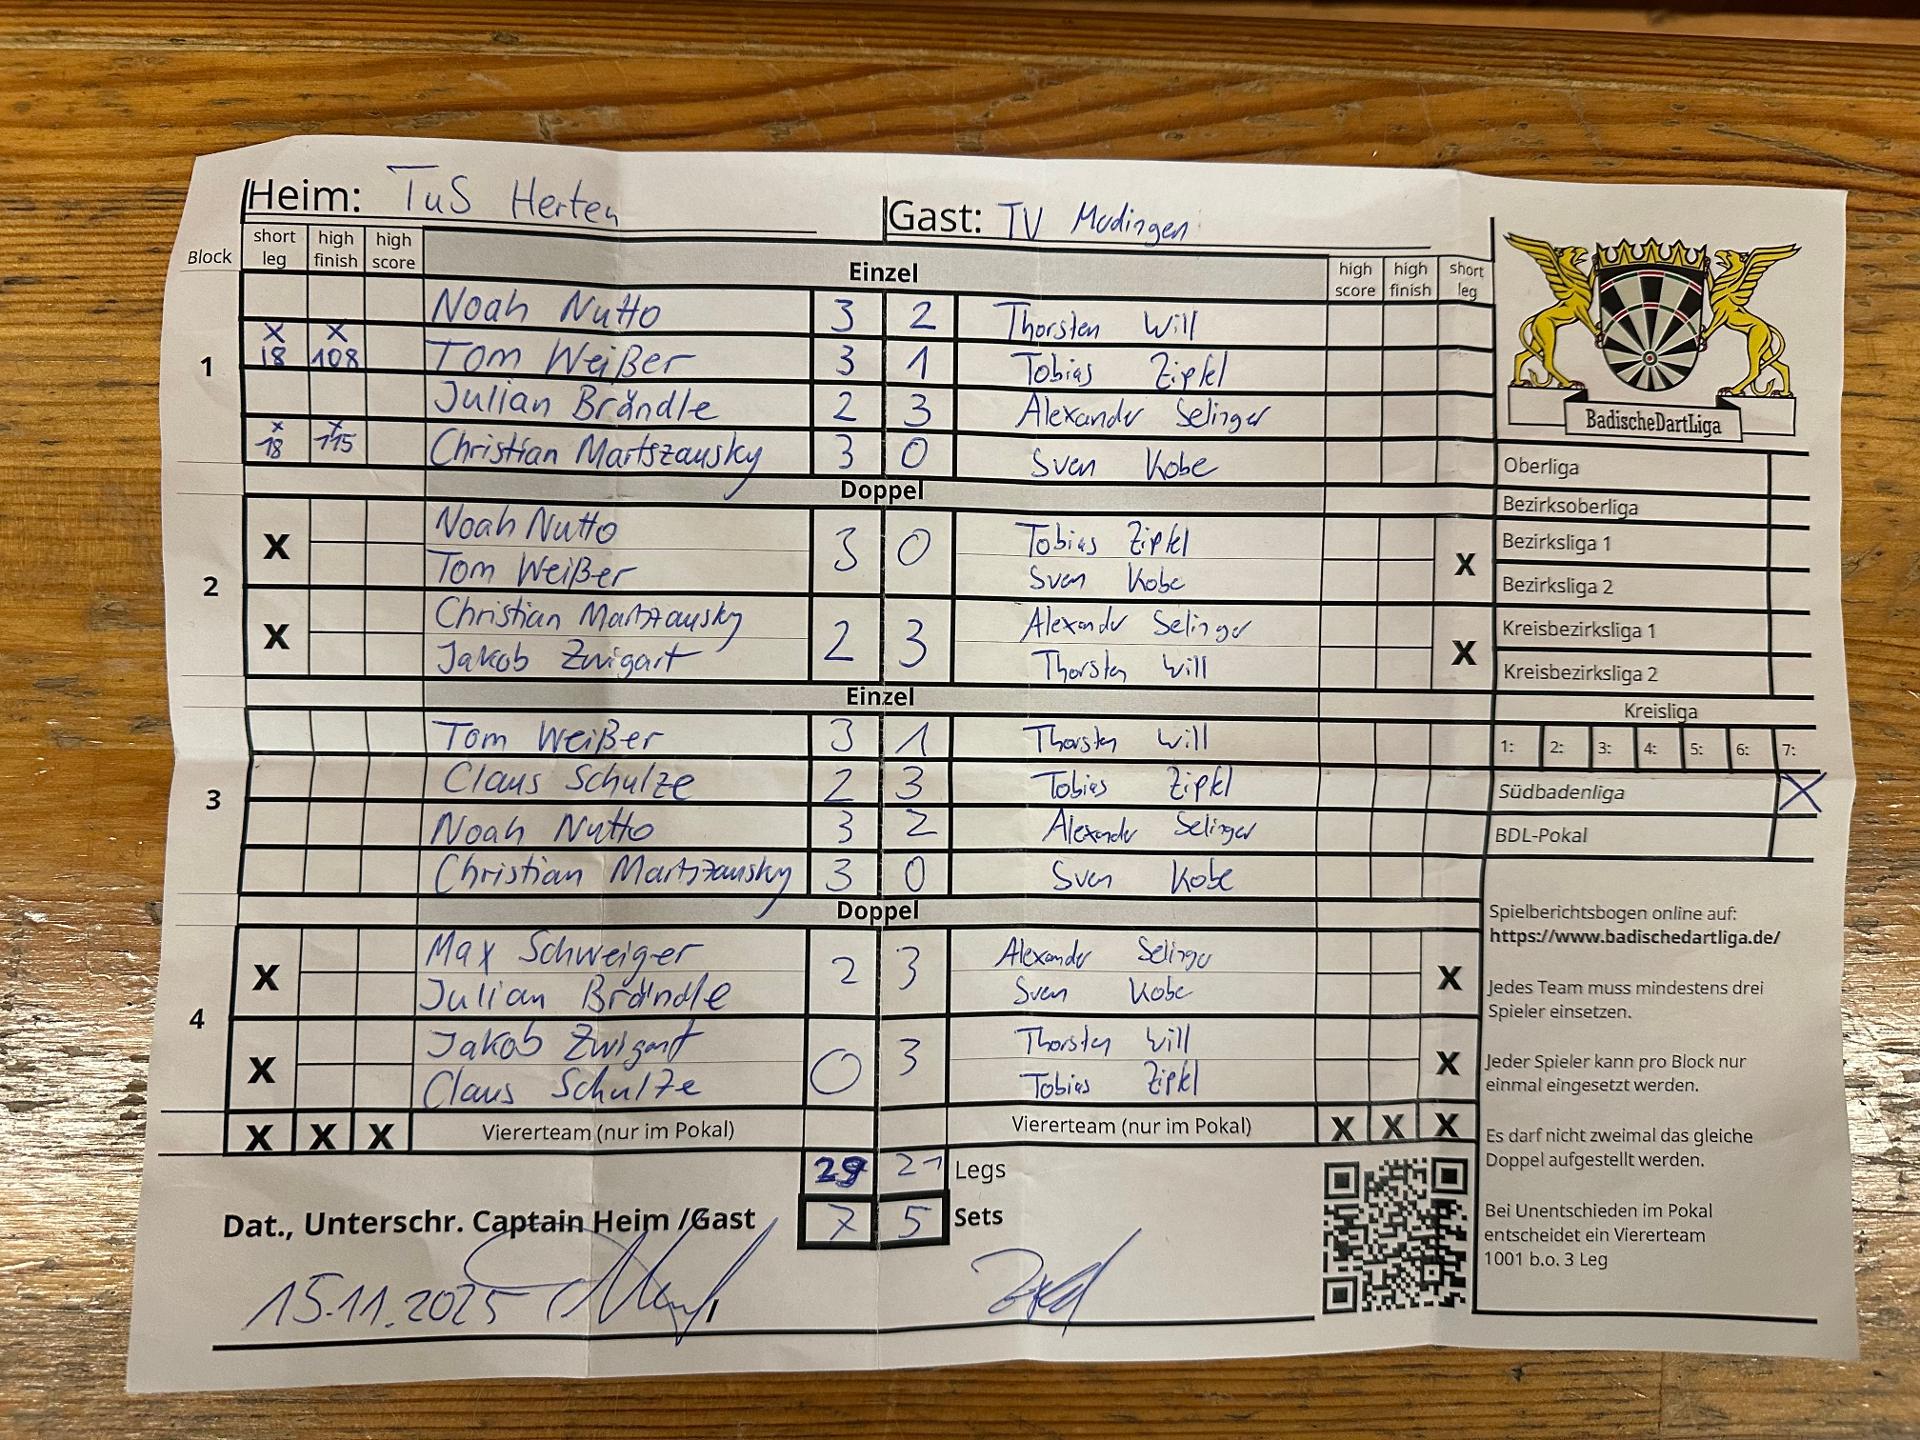 Heim: TuS Herten Gast: TV Mudingen
Block short leg high finish high score Einzel high score high finish short leg
1
Noah Nutto 3 2 Thorsten Will
X 18 X 108 Tom Weißer 3 1 Tobias Zipfel
Julian Brändle 2 3 Alexander Selinger
x 18 x 115 Christian Martszausky 3 0 Sven Kobe
Doppel
2
X Noah Nutto 3 0 Tobias Zipfel X
Tom Weißer Sven Kobe
X Christian Martszausky 2 3 Alexander Selinger X
Jakob Zwigart Thorsten Will
Einzel
3
Tom Weißer 3 1 Thorsten Will
Claus Schulze 2 3 Tobias Zipfel
Noah Nutto 3 2 Alexander Selinger
Christian Martszausky 3 0 Sven Kobe
Doppel
4
X Max Schweiger 2 3 Alexander Selinger X
Julian Brändle Sven Kobe
X Jakob Zwigart 0 3 Thorsten Will X
Claus Schulze Tobias Zipfel
X X X Viererteam (nur im Pokal) Viererteam (nur im Pokal) X X X
29 21 Legs
Dat., Unterschr. Captain Heim /Gast 7 5 Sets
15.11.2025
BadischeDartLiga
Oberliga
Bezirksoberliga
Bezirksliga 1
Bezirksliga 2
Kreisbezirksliga 1
Kreisbezirksliga 2
Kreisliga
1: 2: 3: 4: 5: 6: 7:
Südbadenliga X
BDL-Pokal
Spielberichtsbogen online auf:
https://www.badischedartliga.de/
Jedes Team muss mindestens drei
Spieler einsetzen.
Jeder Spieler kann pro Block nur
einmal eingesetzt werden.
Es darf nicht zweimal das gleiche
Doppel aufgestellt werden.
Bei Unentschieden im Pokal
entscheidet ein Viererteam
1001 b.o. 3 Leg